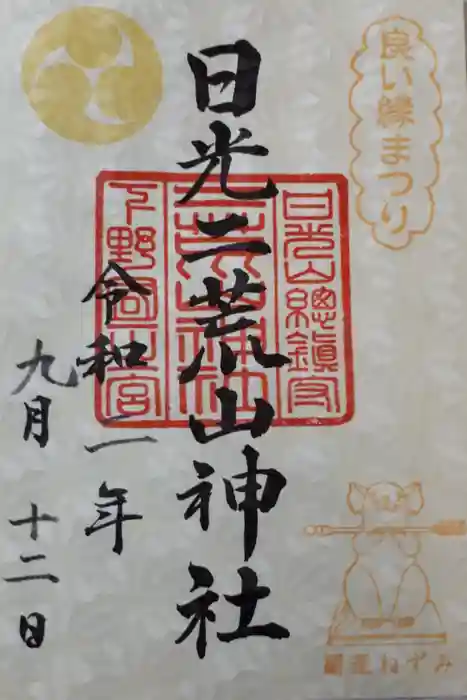 良い縁まつり
日光二荒山神社
日光山總鎮守
二荒山神社
下野國一之宮
令和二年
九月十二日
開運ねずみ